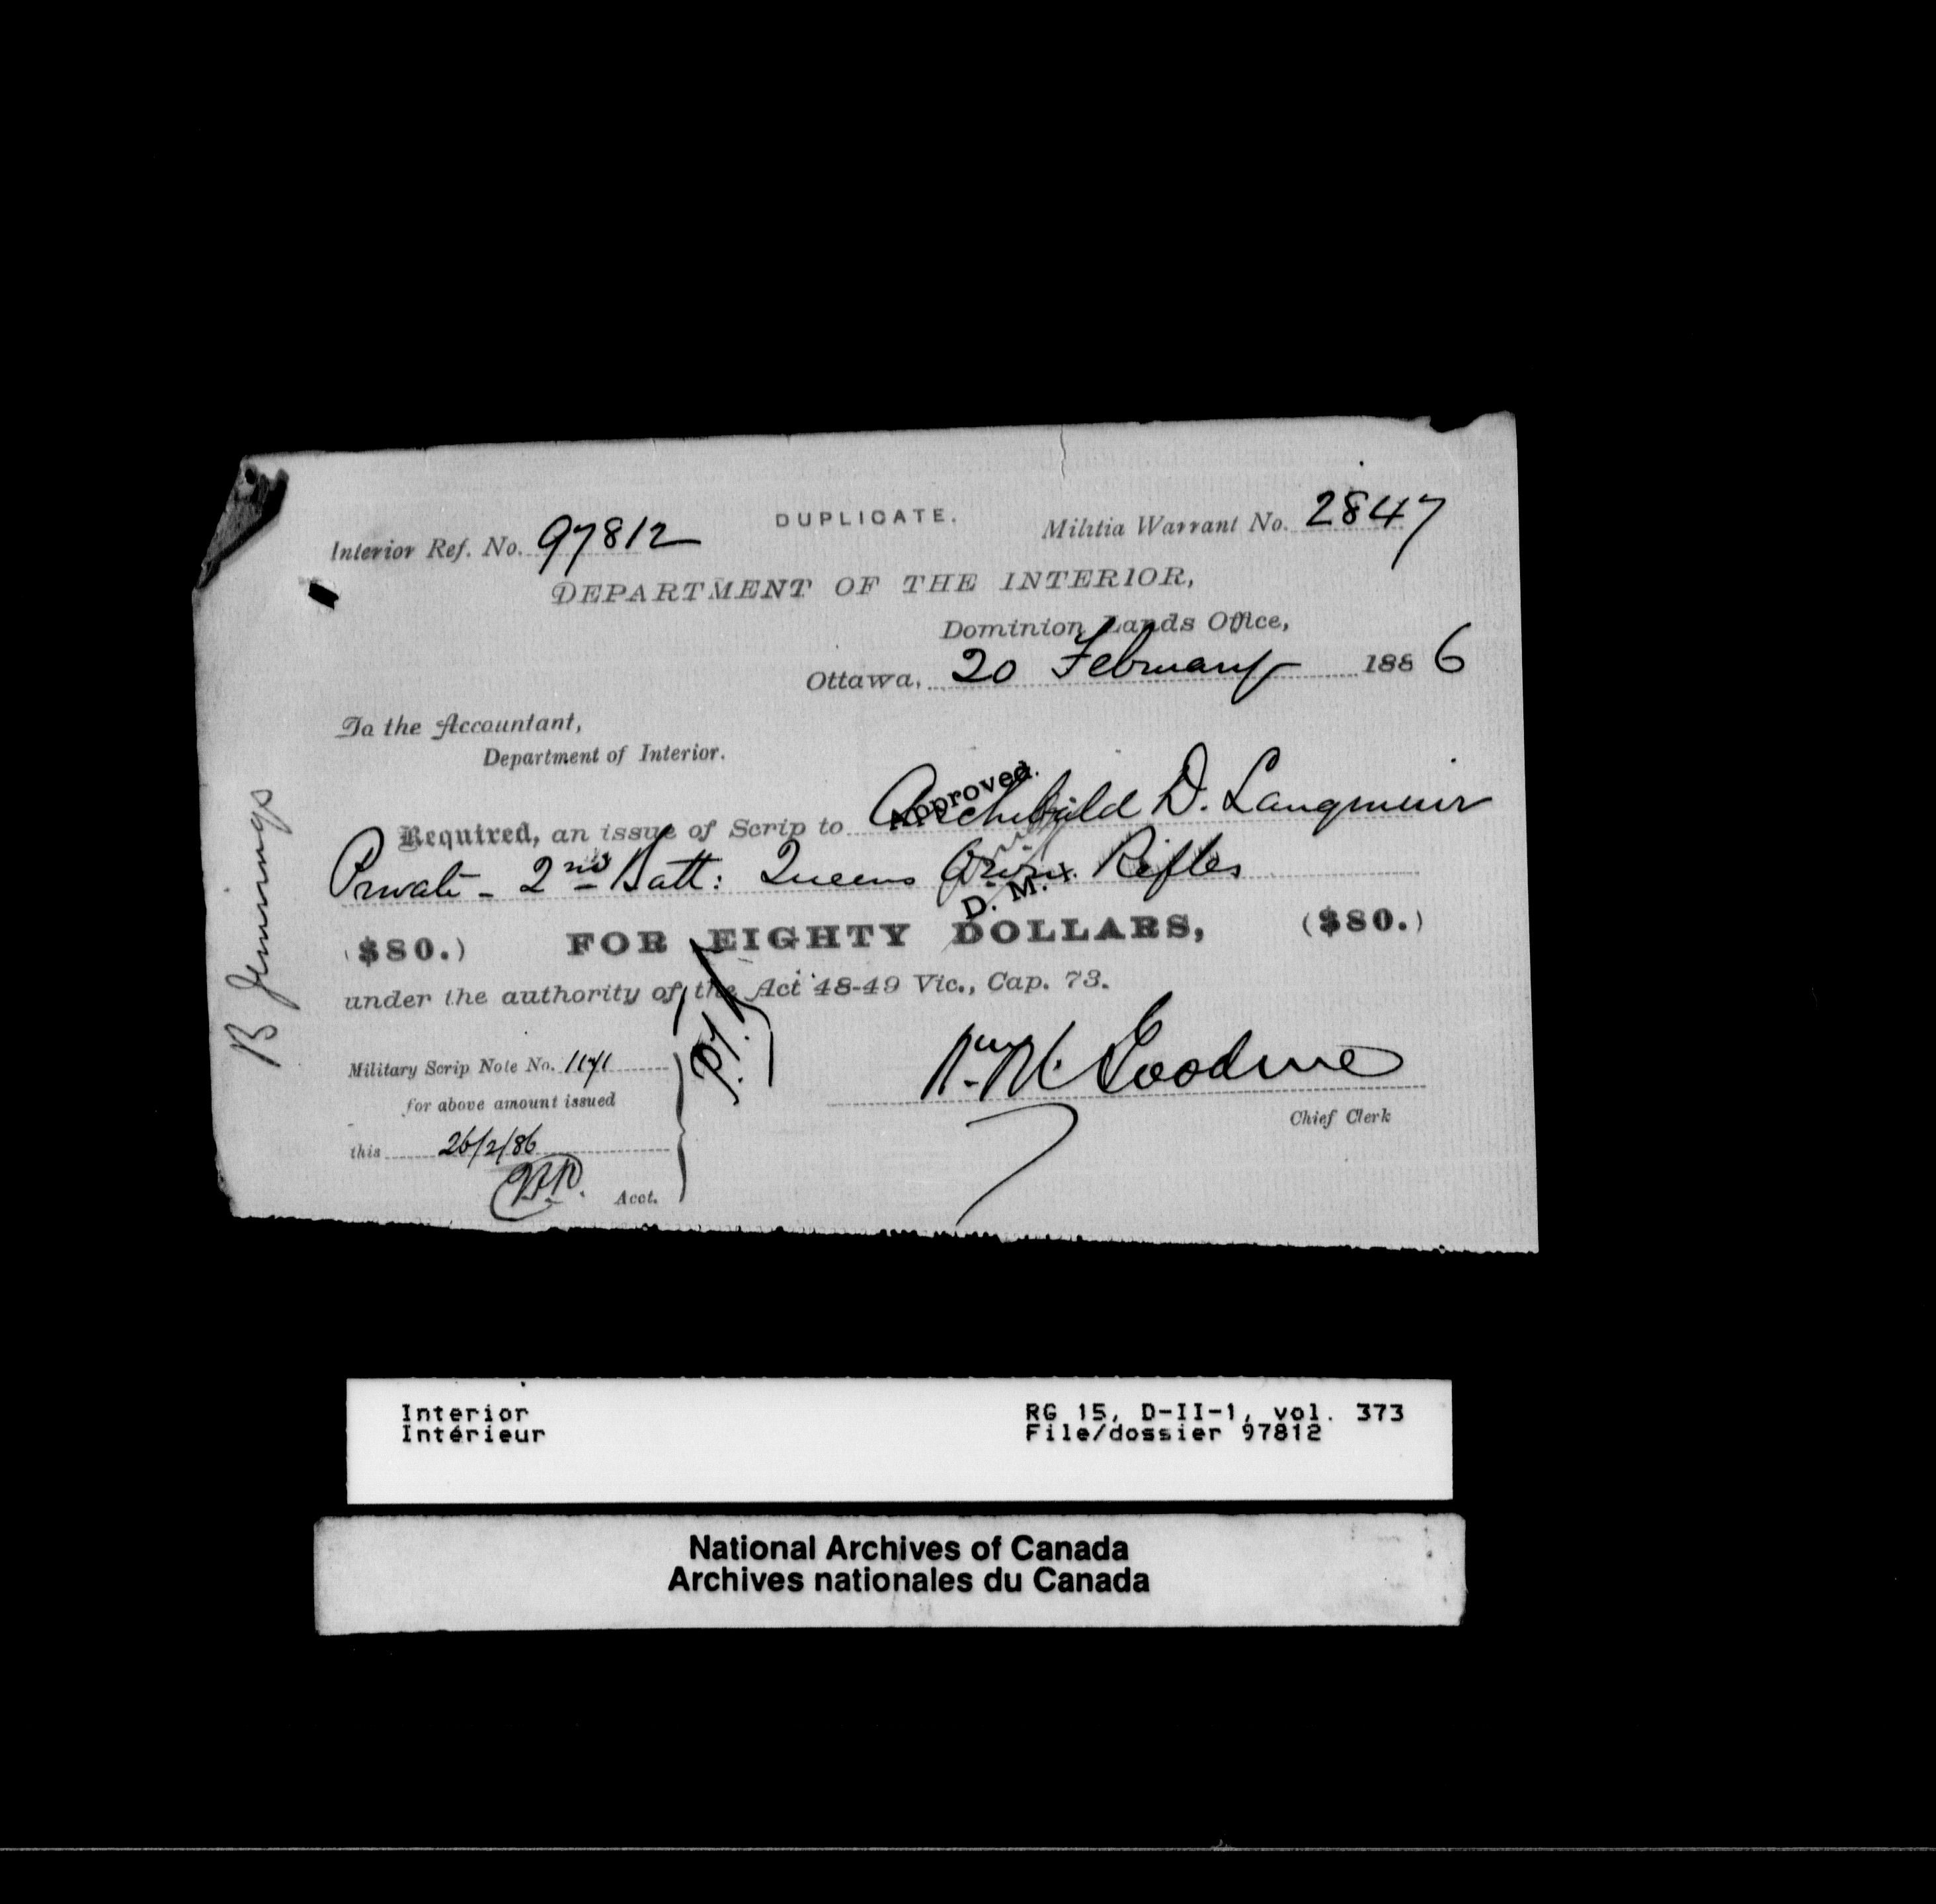 DUPLICATE.
Interior Ref. No. 97812
Militia Warrant No. 2847
DEPARTMENT OF THE INTERIOR,
Dominion Lands Office,
Ottawa, 20 February 1886
To the Accountant,
Department of Interior.
Approved.
Required, an issue of Scrip to Archibald D. Langmuir
Private - 2nd Batt: Queens Own Rifles
D. M. I.
($80.) FOR EIGHTY DOLLARS, ($80.)
under the authority of the Act 48-49 Vic., Cap. 73.
B Jennings
Military Scrip Note No. 1171
for above amount issued
this 26/2/86
Acct.
Wm M. Goodeve
Chief Clerk
Interior
Intérieur
RG 15, D-II-1, vol. 373
File/dossier 97812
National Archives of Canada
Archives nationales du Canada